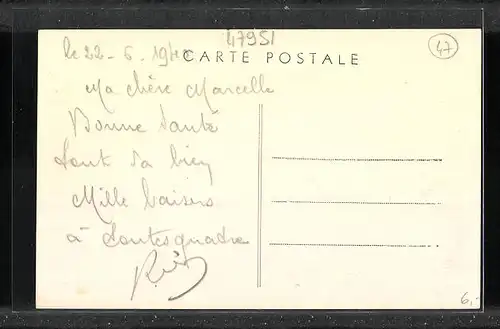 47951
47
le 22-6.1940
CARTE POSTALE
Ma chère Marcelle
Bonne Santé
Tout va bien
Mille baisers
à toutes quatre
6,-